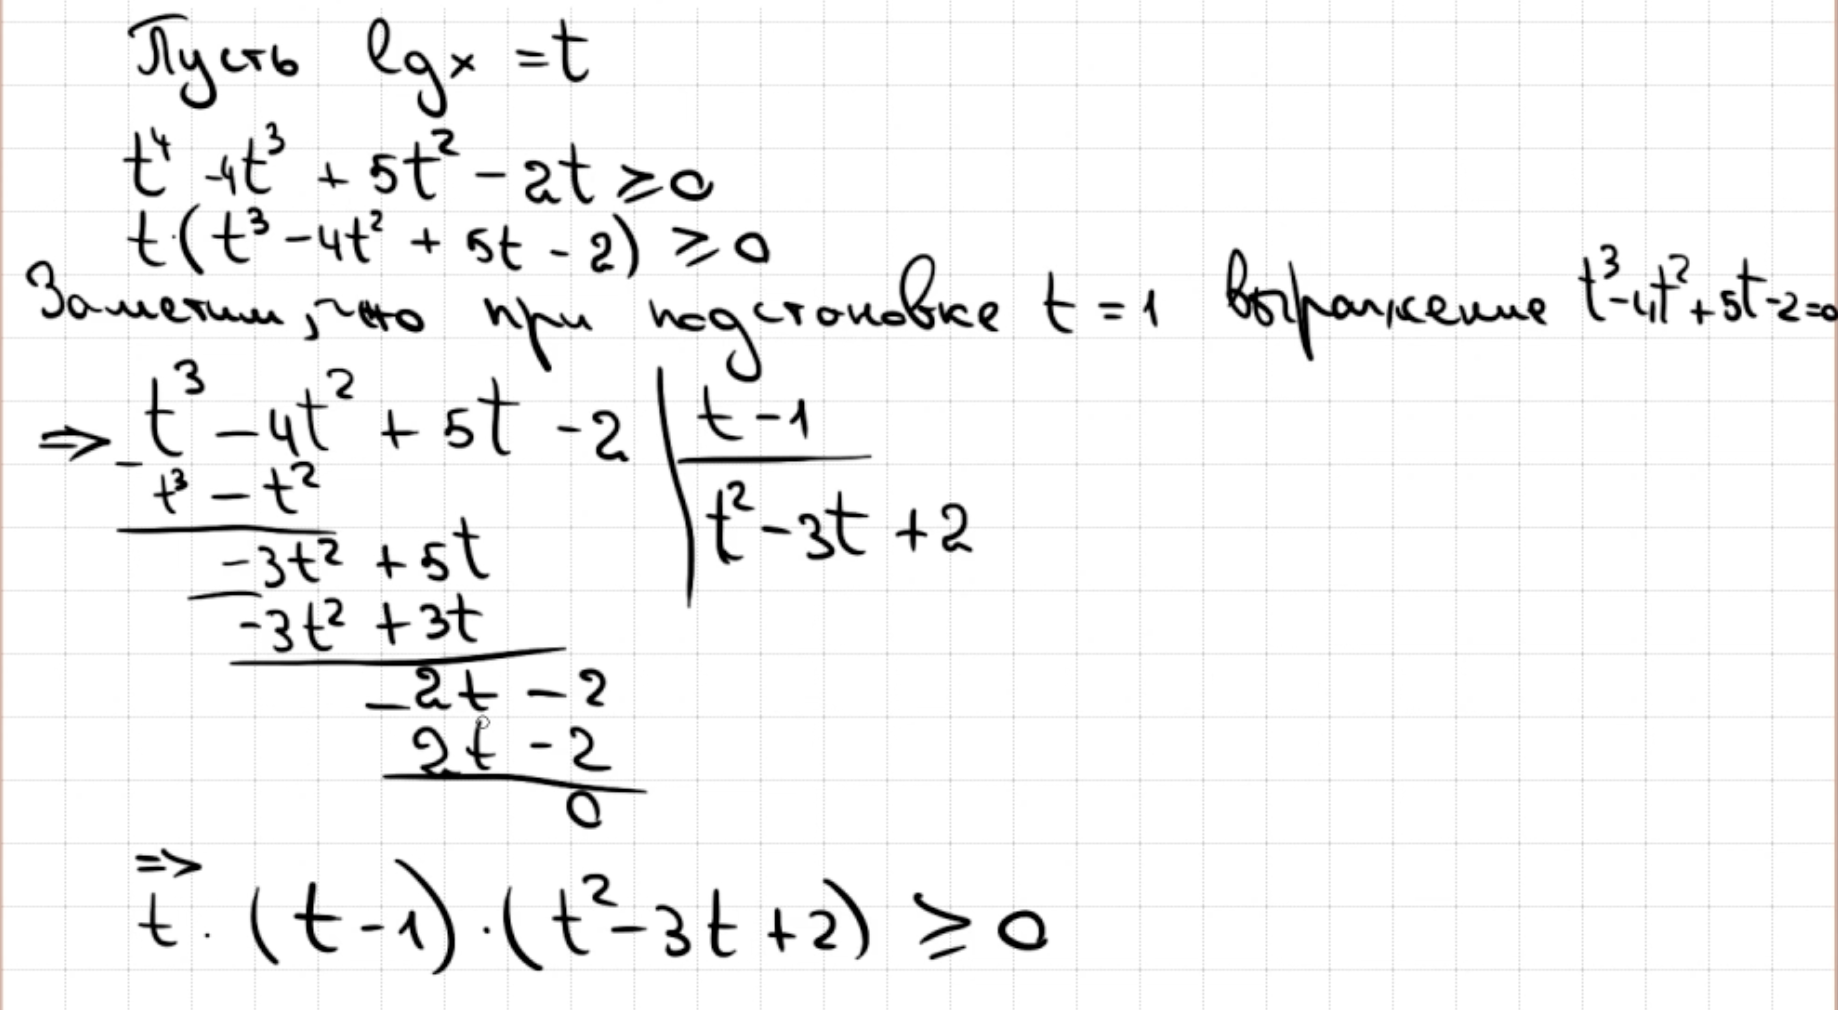 Пусть lgx = t
t⁴ - 4t³ + 5t² - 2t ≥ 0
t·(t³ - 4t² + 5t - 2) ≥ 0
Заметим, что при подстановке t = 1 выражение t³ - 4t² + 5t - 2 = 0
⇒ t³ - 4t² + 5t - 2 | t - 1
- t³ - t² | t² - 3t + 2
-3t² + 5t
- -3t² + 3t
- 2t - 2
2t - 2
0
⇒
t · (t - 1) · (t² - 3t + 2) ≥ 0